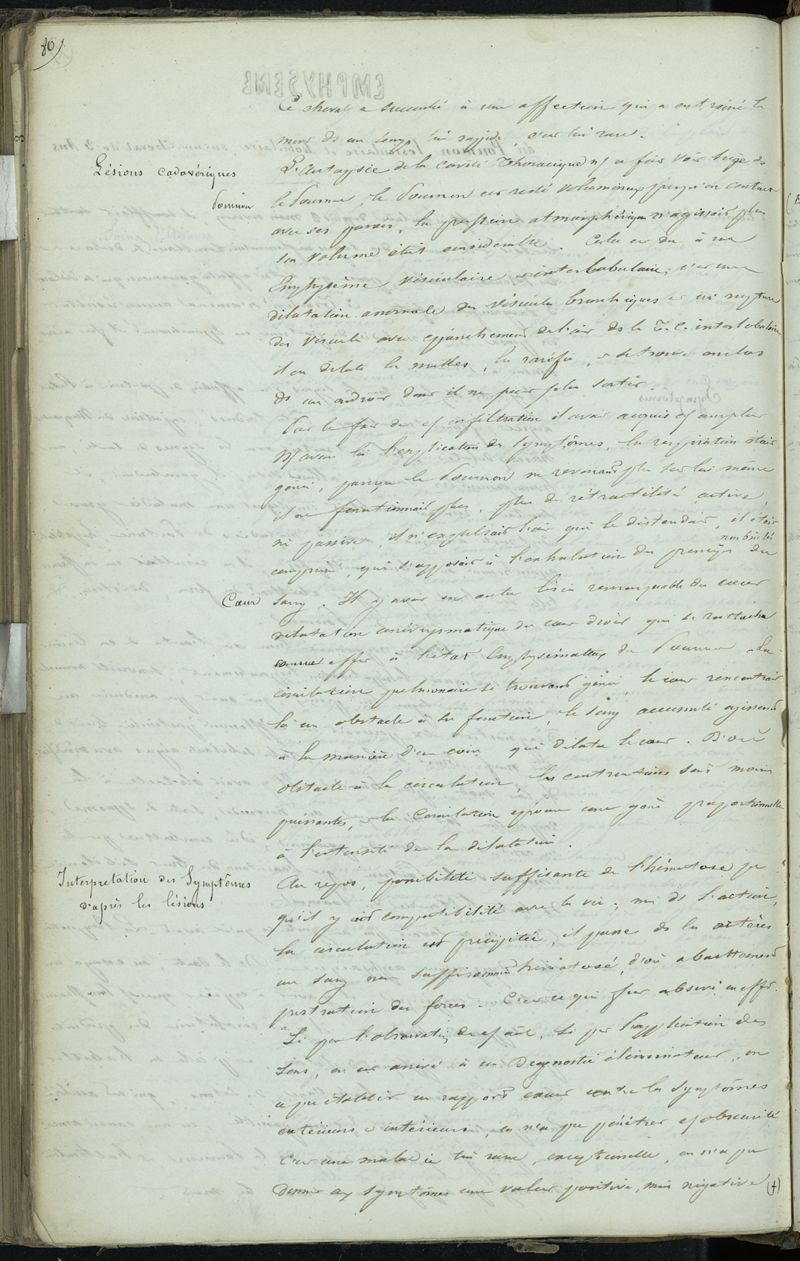 86)
Ce cheval a succombé à une affection qui a entrainé la
mort ds un temps très rapide, c'est très rare.
Lésions cadavériques
L'autopsie de la cavité Thoracique ns a fait voir siège de
Poumon
le Poumon, le Poumon est resté volumineux jusqu'au contact
avec ses parois, la pression atmosphérique n'agissait plus
son volume était considérable. Cela est du à un
Emphysème vésiculaire interlobulaire, c'est une
dilatation anormale des vésicules bronchiques et une rupture
des vésicules avec épanchement de l'air ds le T. C. interlobulaire
il en dilate les mailles, les raréfie, et se trouve enclos
ds un endroit dont il ne peut plus sortir.
Par le fait de cette infiltration il avait acquis cet ampleur
Ns avons là l'explication des symptômes, la respiration était
génée, puisque le Poumon ne revenant plus sur lui même
il ne fonctionnait plus, plus de rétractilité active,
ni passive, il n'expulsait l'air qui le distendait, il était
comprimé, qui s'opposait à l'exhalation des principes nuisibles du
Cœur
sang. Il y avait en outre lésion remarquable du cœur
dilatation anévrysmatique du cœur droit qui se rattache
comme effet à l'état Emphysémateux du Poumon. La
circulation pulmonaire se trouvant génée, le cœur rencontrait
là un obstacle à sa fonction, le sang accumulé agissant
à la manière d'un coin qui dilate le cœur. D'où
obstacle à la circulation, les contractions sont moins
puissantes, la Circulation éprouve une gêne proportionnelle
à l'intensité de la dilatation.
Interprétation des Symptômes
d'après les lésions
Au repos, possibilité suffisante de l'hématose pr
qu'il y ait compatibilité avec la vie; mais ds l'action,
la circulation est précipitée, il passe ds les artères
un sang non suffisamment hématosé, d'où abattement
prostration des forces. C'est ce qui fut observé en effet.
Si par l'observation de cet fait, si par l'application des
sens, on est arrivé à un Diagnostic éliminateur, on
a pu établir un rapport exact entre les symptômes
extérieurs et intérieurs, on n'a pu pénétrer cette obscurité
C'est une maladie très rare, exceptionnelle, on n'a pu
donner aux symptômes une valeur positive, mais négative (+)